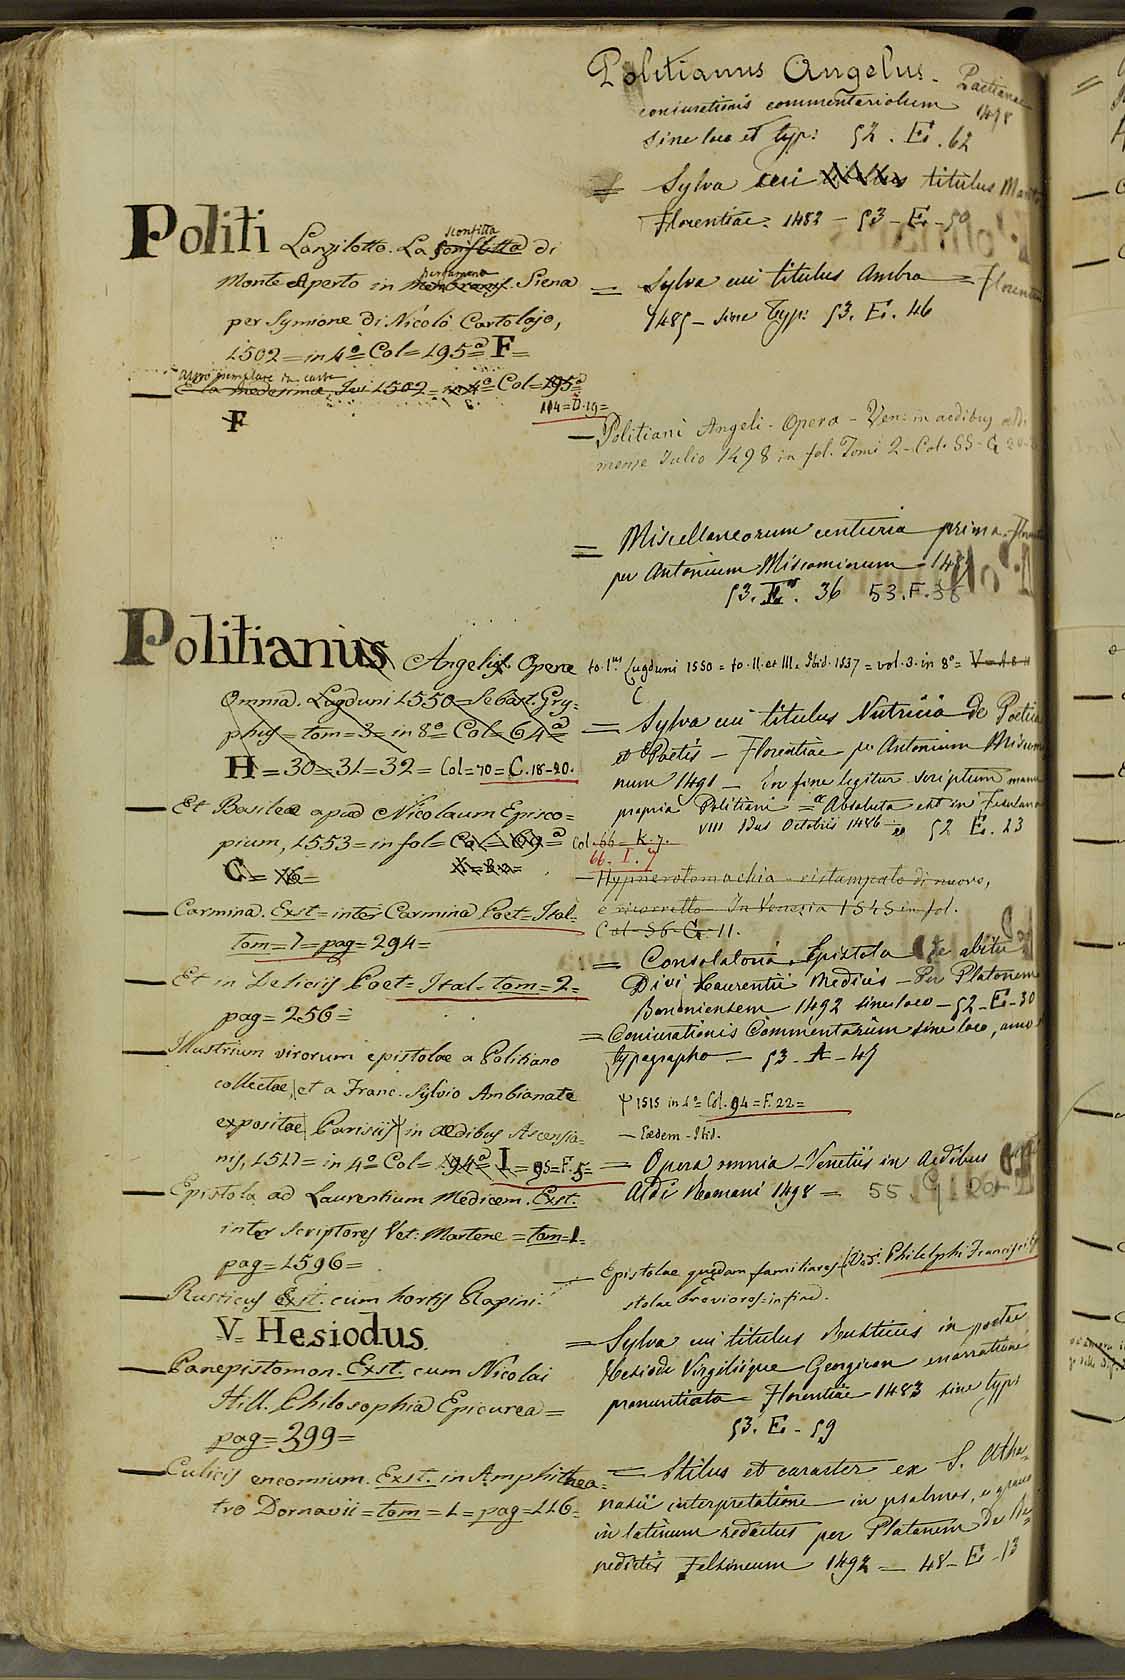 Politi Lanzilotto. La sconfitta di
Monte Aperto in pergamena Siena
per Symione di Nicolò Cartolajo,
1502 = in 4º Col = 195ª F =
Altro semplare in carta
Col = 195ª
114 = D. 19 =
F
Politianus Angelus Opera
Omnia. Lugduni 1550 = Sebast. Gry=
phus = tom = 3 = in 8º Col = 64ª =
H = 30 = 31 = 32 = Col = 70 = C. 18-20.
Et Basileae apud Nicolaum Episco=
pium, 1553 = in fol = Col = 69ª =
C = 16 =
Carmina. Exst = inter Carmina Poet = Ital =
tom = 7 = pag = 294 =
Et in Deliciis Poet = Ital = tom = 2 =
pag = 256 =
Illustrium virorum epistolae a Politiano
collectae, et a Franc. Sylvio Ambianate
expositae Parisiis in aedibus Ascensia=
nis, 1517 = in 4º Col = 94ª I = 95 = F. 5 =
Epistola ad Laurentium Medicem. Exst.
inter Scriptores Vet: Martene = tom = 1 =
pag = 1596 =
Rusticus Exst. cum hortis Rapini.
V. Hesiodus.
Panepistemon. Exst. cum Nicolai
Hill. Philosophia Epicurea =
pag = 299 =
Culicis encomium. Exst. in Amphithea=
tro Dornavii = tom = 1 = pag = 116 =
Politianus Angelus. Pactianae
coniurationis commentariolum 1478
sine loco et typ: 52. E. 62
= Sylva cui titulus Manto
Florentiae = 1482 - 53 - E - 50
= Sylva cui titulus Ambra = Florentiae
1485 - sine typ: 53. E. 46
- Politiani Angeli - Opera - Ven: in aedibus Aldi
mense Julio 1498 in fol. Tomi 2 - Col. 55 - G 20
= Miscellaneorum centuria prima Florentiae
per Antonium Miscominum - 1489
53. E. 36 53. F. 38
to. Ius Lugduni 1550 = to. II. et III. Ibid. 1537 = vol. 3. in 8º =
= Sylva cui titulus Nutricia de Poetica
et Poetis - Florentiae per Antonium Miscomi
num 1491 - in fine legitur scriptum manu
propria Politiani = Absoluta est in Fesulano
VIII Idus Octobris 1486 = 52 E. 23
Col. 66 - K. 7.
66. I. 7
- Hypnerotomachia - ristampato di nuovo,
e ricorretto - In Venezia 1545 in fol.
Col - 56 - G. 11.
= Consolatoria Epistola de obitu
Divi Laurentii Medicis - Per Platonem
Bononiensem 1492 sine loco - 52 - E - 30
= Coniurationis Commentarium sine loco, anno
typographo = 53 - A - 47
1515 in 4º Col. 94 = F. 22 =
- Eaedem - Ibid.
= Opera omnia - Venetiis in Aedibus
Aldi Romani 1498 = 55. G 20
- Epistolae quaedam familiares (Ved. Philelphi Francisci Epi
stolae breviores = in fine.
= Sylva cui titulus Rusticus in poetae
Hesiodi Virgiliique Georgicon enarratione
pronuntiata = Florentiae 1483 sine typ:
53. E - 59
= Stilus et caracter ex S. Atha=
nasii interpretatione in psalmos, e graeco
in latinum redactus per Platonem de Be=
nedictis Felsineum 1492 = 48 - E - 13